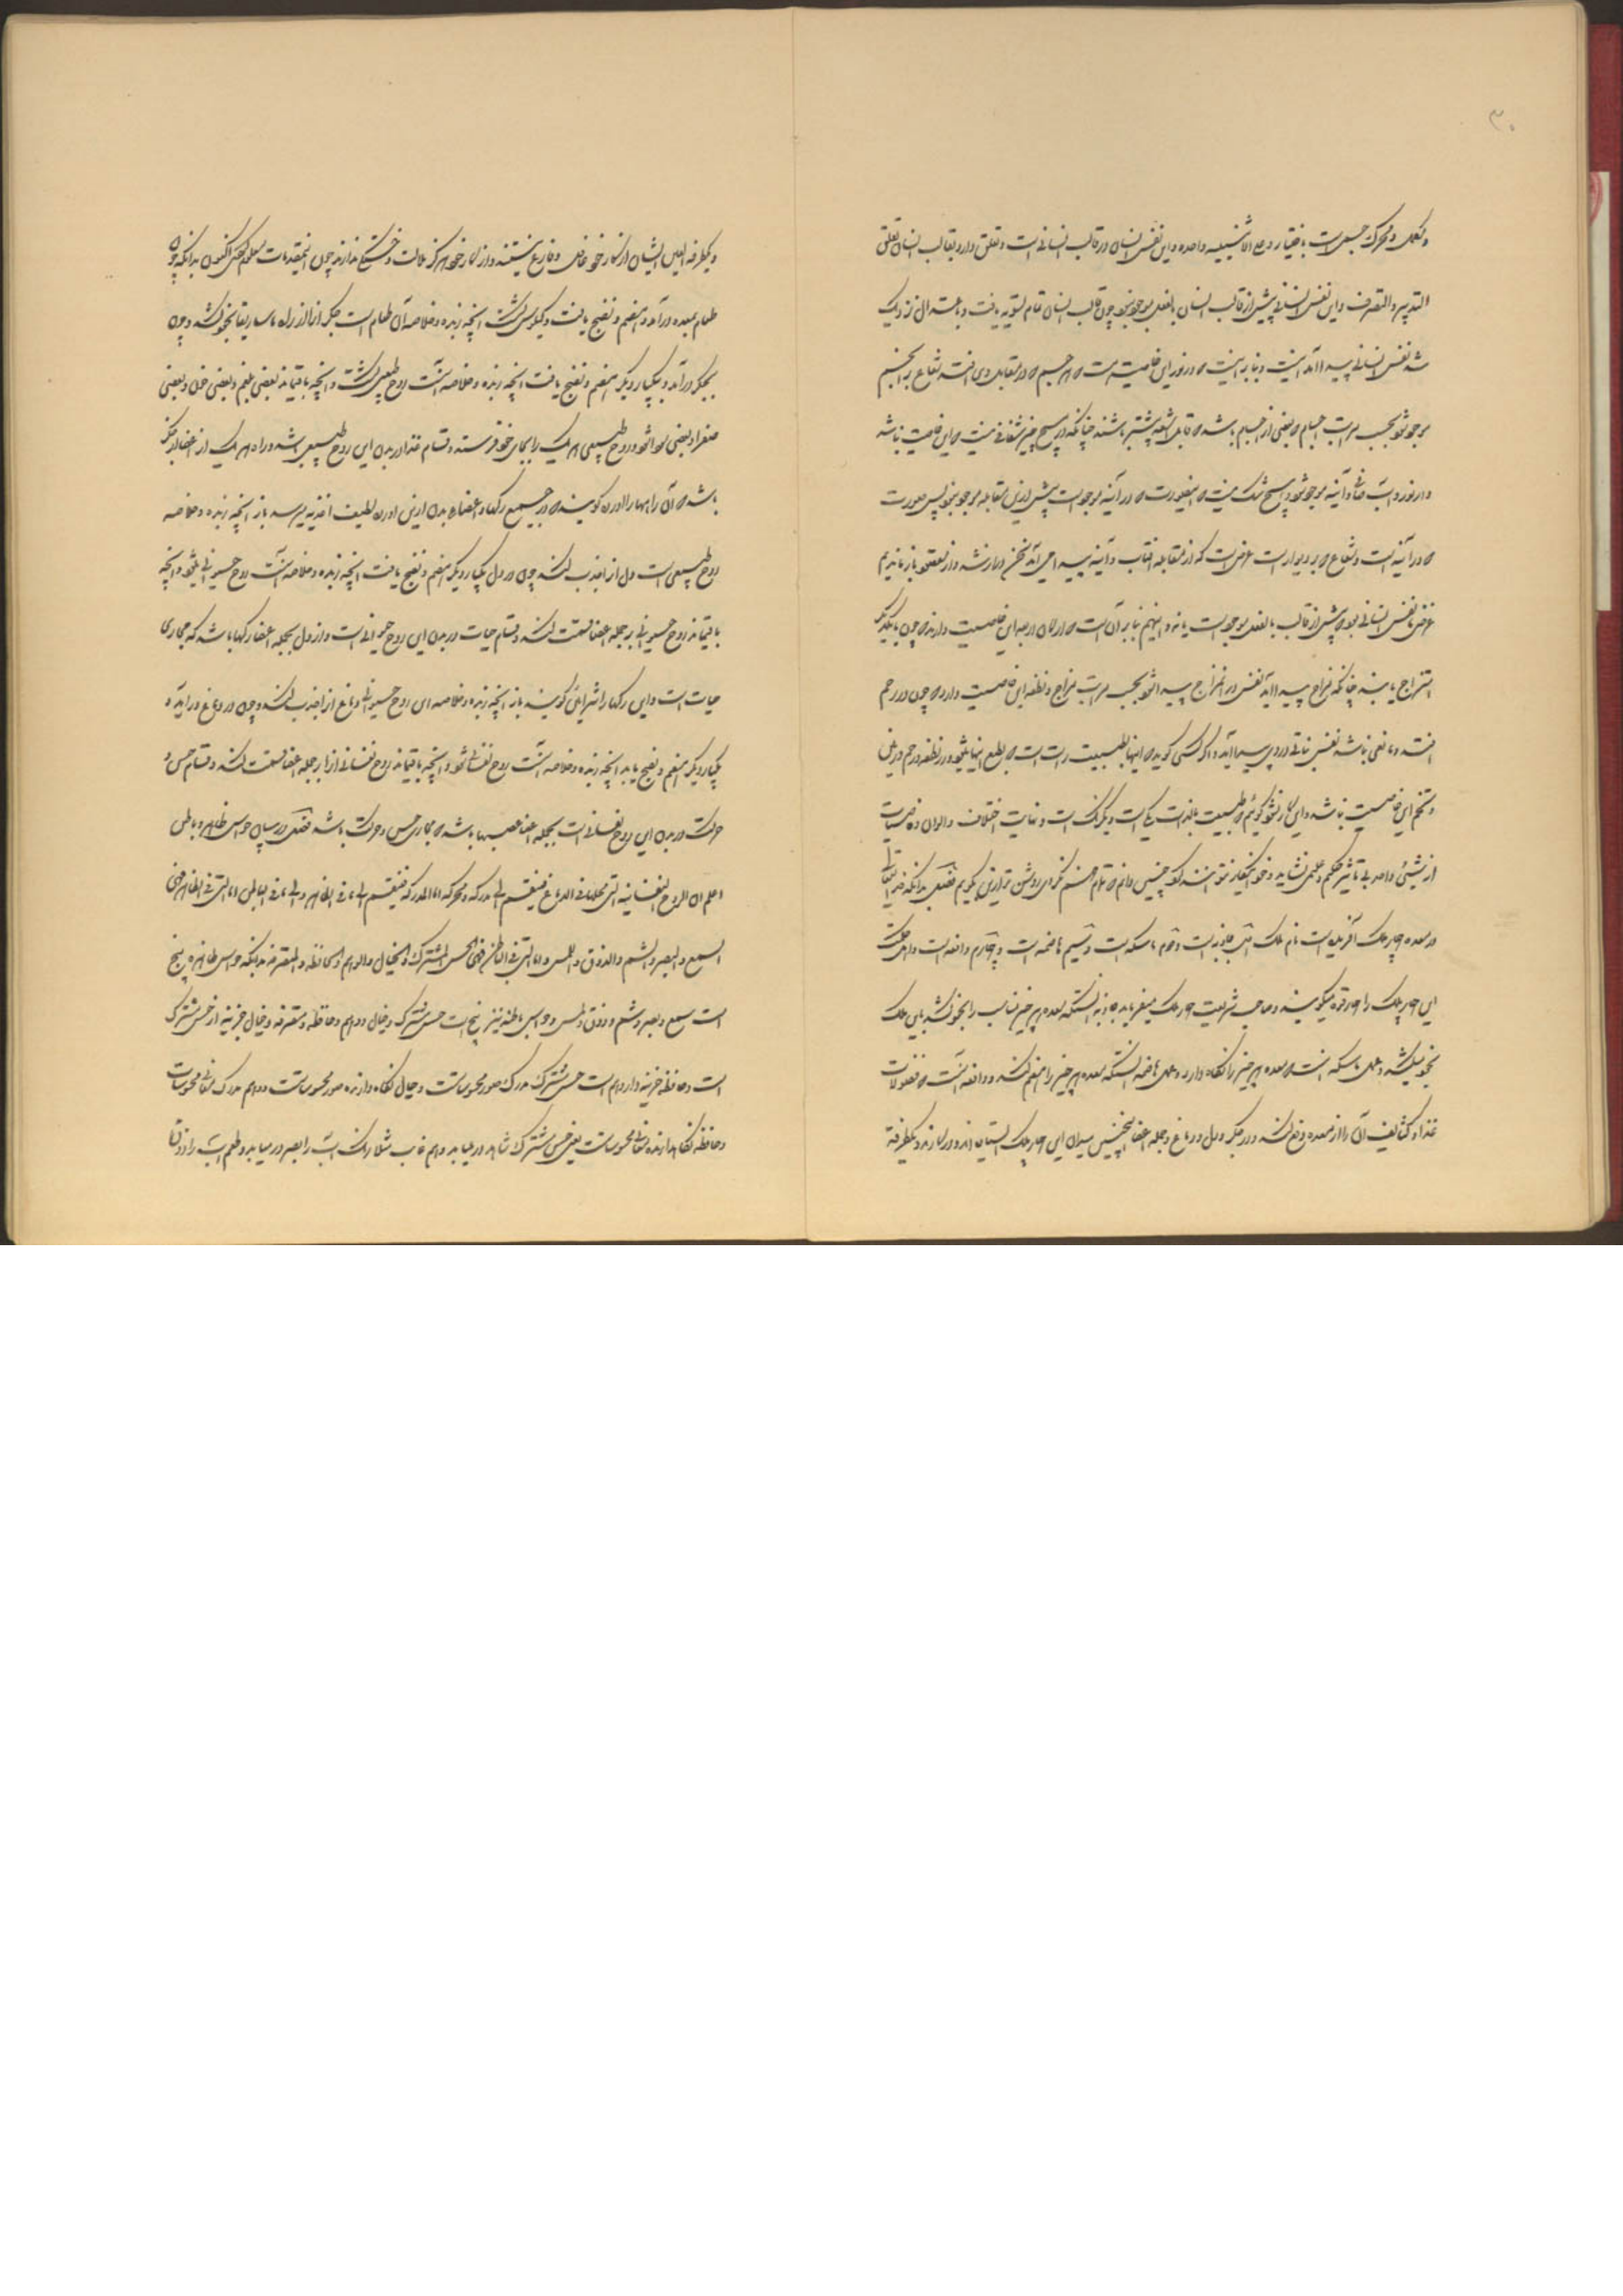 ۳۰
و محرک جسم است باختیار و علی الاشیا واحده و این نفس انسان در قالب انسانی است و تعلق دارد بقالب انسان تعلق
التدبیر و التصرف و این نفس انسانی پیش از قالب انسان بالفعل موجود نبود چون قالب انسان تمام تسویه یافت و باعتدال نزدیک
شد نفس انسانی پیدا آمد و بنابر اینست که در نور این خاصیت هست که هر جسم که در مقابل وی افتد شعاع بر آن جسم
موجود شود بحسب مراتب اجسام که بعضی از اجسام باشد که قابل شعاع بیشتر باشند چنانکه در هیچ چیز شفافی نیست که این خاصیت نباشد
و از نور و آب صافی و آینه موجود شود و هیچ شک نیست که این صورت که در آینه موجود است پیش ازین مقابله موجود نبود پس صورت
که در آینه است و شعاع که بر دیوار است عرض است که از مقابله آفتاب و آینه پیدا می آید سخن دراز شد و از مقصود باز ماندیم
غرض نفس انسانی بود که پیش از قالب بالفعل موجود است یا نه و این هم بنابر آن است که ارکان اربعه این خاصیت دارند که چون با یکدیگر
امتزاج یابند چنانکه مزاج پیدا آید نفس در امتزاج پیدا شود بحسب مراتب مزاج و نطفه این خاصیت دارد که چون در رحم
افتد و مانعی نباشد نفس نباتی در وی پیدا آید و اگر کسی گوید که اینها بطبیعت راست است که بطبع اینها میشود و در نطفه و رحم و زمین
و تخم این خاصیت نباشد و این کار نشود گوئیم که طبیعت بالذات یکی است و یکرنگ است و نهایت اختلاف و الوان و خاصیات
از شیئی واحد بی تاثیر حکیم و علیم نشاید و خود اینقدر نتوانند گو چنین دانم که تمام فهم نکردی روشن تر ازین بگویم فصل بدانکه خدایتعالی
در معده چهار ملک آفریده است نام ملک اول جاذبه است و دوم ماسکه است و سیم هاضمه است و چهارم دافعه است و اهل حکمت
این چهار ملک را چهار قوه میگویند و صاحب شریعت چهار ملک میفرماید جاذبه آنستکه معده هر چیز مناسب را بخود کشد باین ملک
بخود میکشد و عمل ماسکه آنست که معده هر چیز را نگاه دارد و عمل هاضمه آنستکه معده هر چیز را هضم کند و دافعه آنست که فضولات
غذا و کثایف آن را از معده دفع کند و در جگر و دل و دماغ و جمله اعضا همچنین میدان این چهار ملک ایستاده اند و در کارند و یکطرفة
و یکطرفة العین ایشان از کار خود غافل و فارغ نیستند و از کار خود هرگز ملالت و خستگی ندارند چون این مقدمات معلوم کردی اکنون بدانکه چون
طعام بمعده درآمد و هضم و نضج یافت و کیلوس گشت آنچه زبده و خلاصه آن طعام است جگر از آن از راه ماساریقا بخود کشد و چون
بجگر درآمد و یکبار دیگر هضم و نضج یافت آنچه زبده و خلاصه آنست روح طبیعی گشت و آنچه باقیماند بعضی بلغم و بعضی خون و بعضی
صفرا و بعضی سودا شود و روح طبیعی هر یک را بجای خود فرستد و قسام غذا در بدن این روح طبیعی باشد و راه هر یک از اعضا از جگر
باشد که آن راهها را اورده گویند که در جمیع رگها و اعضاء بدن ازین اورده لطیف اغذیه میرسد باز آنچه زبده و خلاصه
روح طبیعی است دل از او جذب کند چون در دل یکبار دیگر هضم و نضج یافت آنچه زبده و خلاصه آنست روح حیوانی میشود و آنچه
باقیماند روح حیوانی بر جمله اعضا قسمت کند و قسام حیات در بدن این روح حیوانی است و از دل بجمله اعضا رگها باشد که مجاری
حیات است و این رگها را شرائین گویند باز آنچه زبده و خلاصه این روح حیوانی دماغ از او جذب کند و چون در دماغ درآید و
یکبار دیگر هضم و نضج یابد آنچه زبده و خلاصه آنست روح نفسانی شود و آنچه باقیماند روح نفسانی آنرا بر جمله اعضا قسمت کند و قسام حس و
حرکت در بدن این روح نفسانی است بجمله اعضا عصبها باشد که مجاری حس و حرکت باشد فصل در بیان حواس ظاهر و باطن
اعلم ان الروح النفسانیه التی محلها فی الدماغ فینقسم الی مدرکه و محرکه اما المدرکه فینقسم الی ما فی الظاهر و الی ما فی الباطن اما التی فی الظاهر فهی
السمع و البصر و الشم و الذوق و اللمس و اما التی فی الباطن فهی الحس المشترک و الخیال و الواهم و الحافظه و المتصرفه بدانکه حواس ظاهره پنج
است سمع و بصر و شم و ذوق و لمس و حواس باطنه نیز پنج است حس مشترک و خیال و واهم و حافظه و متصرفه و خیال خزینه دار حس مشترک
است و حافظه خزینه دار واهم است حس مشترک مدرک صور محسوسات و خیال نگاه دارنده صور محسوسات و واهم مدرک معانی محسوسات
و حافظه نگاهدارنده معانی محسوسات یعنی حس مشترک شاهد در میابد و واهم غایب مثلا رنگ آب را بصر در میابد و طعم آب را ذوق